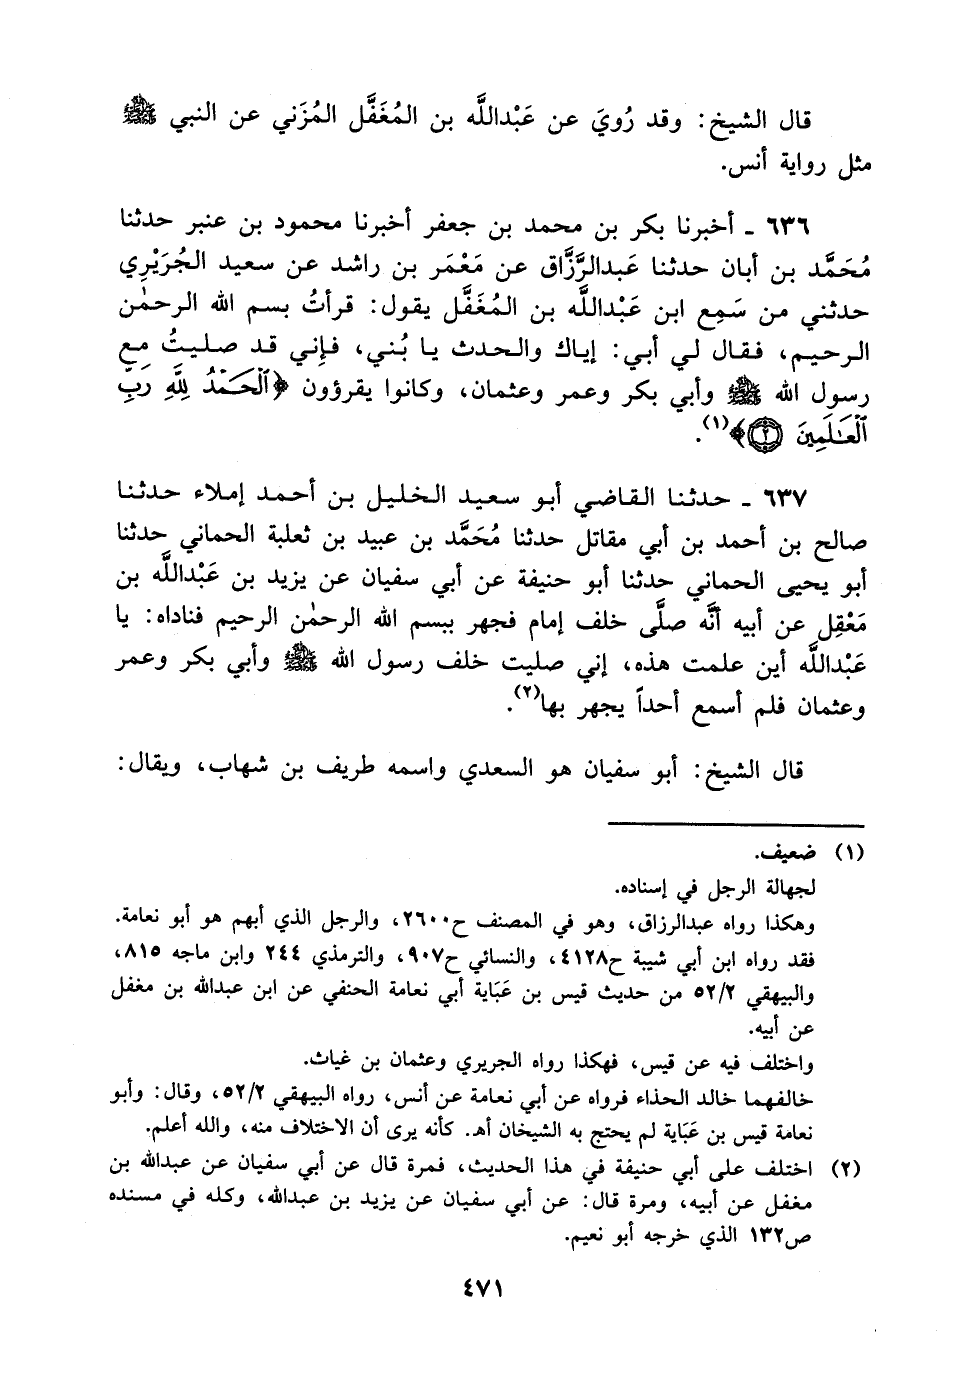 قال الشيخ: وقد رُويَ عن عَبْدالله بن المُغَفَّل المُزَني عن النبي ﷺ
مثل رواية أنس.
٦٣٦ ـ أخبرنا بكر بن محمد بن جعفر أخبرنا محمود بن عنبر حدثنا
مُحَمَّد بن أبان حدثنا عَبدالرَّزَّاق عن مَعْمَر بن راشد عن سعيد الجُرَيْرِي
حدثني من سَمِع ابن عَبْدالله بن المُغَفَّل يقول: قرأتُ بسم الله الرحمٰن
الرحيم، فقال لي أبي: إياك والحدث يا بُني، فإني قد صليتُ مع
رسول الله ﷺ وأبي بكر وعمر وعثمان، وكانوا يقرؤون ﴿ٱلۡحَمۡدُ لِلَّهِ رَبِّ
ٱلۡعَٰلَمِينَ ۝٢﴾(١).
٦٣٧ ـ حدثنا القاضي أبو سعيد الخليل بن أحمد إملاء حدثنا
صالح بن أحمد بن أبي مقاتل حدثنا مُحَمَّد بن عبيد بن ثعلبة الحماني حدثنا
أبو يحيى الحماني حدثنا أبو حنيفة عن أبي سفيان عن يزيد بن عَبْدالله بن
مَعْقِل عن أبيه أنَّه صلَّى خلف إمام فجهر ببسم الله الرحمٰن الرحيم فناداه: يا
عَبْدالله أين علمت هذه، إني صليت خلف رسول الله ﷺ وأبي بكر وعمر
وعثمان فلم أسمع أحداً يجهر بها(٢).
قال الشيخ: أبو سفيان هو السعدي واسمه طريف بن شهاب، ويقال:
(١) ضعيف.
لجهالة الرجل في إسناده.
وهكذا رواه عبدالرزاق، وهو في المصنف ح٢٦٠٠، والرجل الذي أبهم هو أبو نعامة.
فقد رواه ابن أبي شيبة ح٤١٢٨، والنسائي ح٩٠٧، والترمذي ٢٤٤ وابن ماجه ٨١٥،
والبيهقي ٥٢/٢ من حديث قيس بن عَبَاية أبي نعامة الحنفي عن ابن عبدالله بن مغفل
عن أبيه.
واختلف فيه عن قيس، فهكذا رواه الجريري وعثمان بن غياث.
خالفهما خالد الحذاء فرواه عن أبي نعامة عن أنس، رواه البيهقي ٥٢/٢، وقال: وأبو
نعامة قيس بن عَبَاية لم يحتج به الشيخان أهـ. كأنه يرى أن الاختلاف منه، والله أعلم.
(٢) اختلف على أبي حنيفة في هذا الحديث، فمرة قال عن أبي سفيان عن عبدالله بن
مغفل عن أبيه، ومرة قال: عن أبي سفيان عن يزيد بن عبدالله، وكله في مسنده
ص١٣٢ الذي خرجه أبو نعيم.
٤٧١